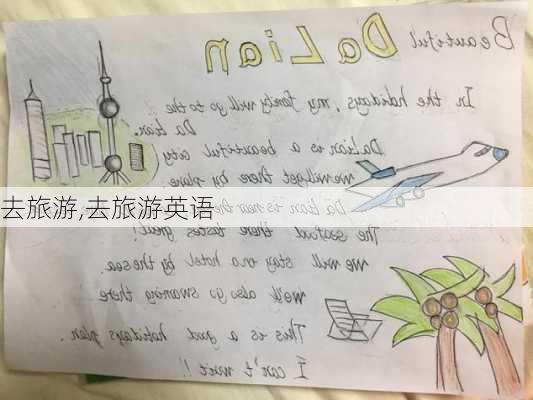 Beautiful DaLian
In the holidays, my family will go to the
Da Lian.
DaLian is a beautiful city
we will get there by plane
Da Lian is near the
去旅游,去旅游英语
The seafood there tastes great!
we will stay in a hotel by the sea.
We'll also go swimming there
This is a good holidays plan.
I can't wait!!